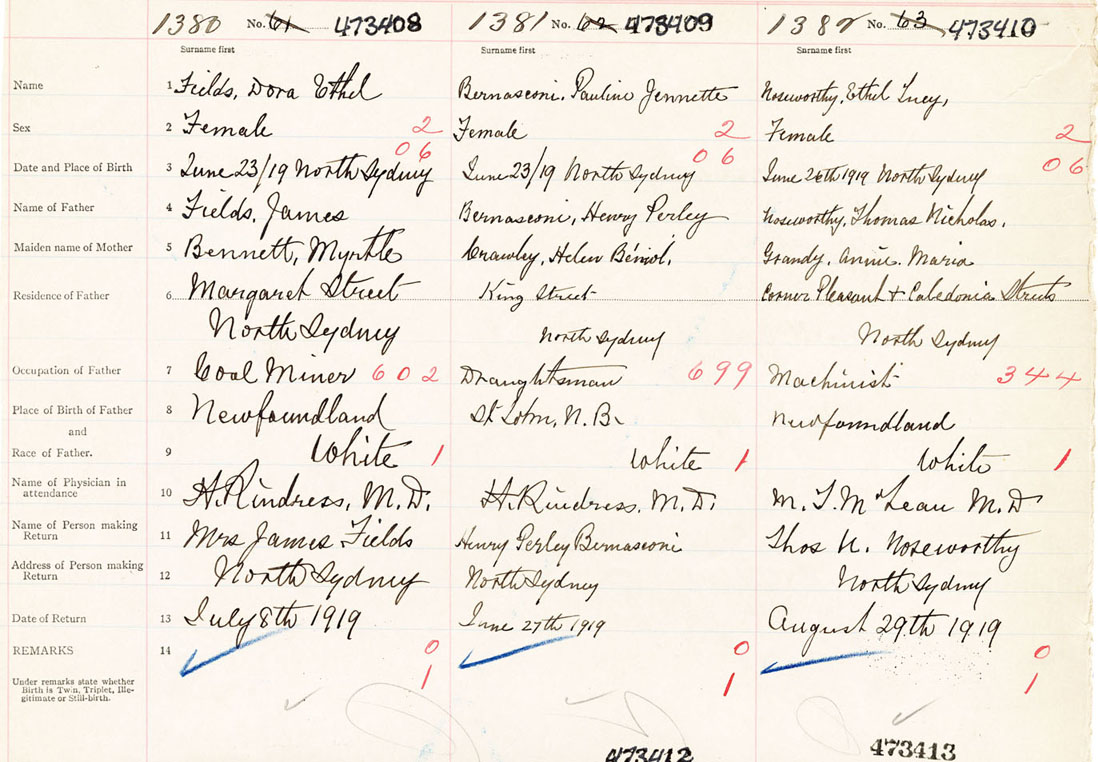 1380 No. 61 473408 1381 No. 62 473409 1382 No. 63 473410
Surname first Surname first Surname first
Name 1 Fields, Dora Ethel Bernasconi, Pauline Jennette Noseworthy, Ethel Lucy,
Sex 2 Female 2 Female 2 Female 2
06 06 06
Date and Place of Birth 3 June 23/19 North Sydney June 23/19 North Sydney June 26th 1919 North Sydney
Name of Father 4 Fields, James Bernasconi, Henry Perley Noseworthy, Thomas Nicholas,
Maiden name of Mother 5 Bennett, Myrtle Crawley, Helen Grandy, Annie. Maria
Residence of Father 6 Margaret Street King Street Corner Pleasant + Caledonia Streets
North Sydney North Sydney North Sydney
Occupation of Father 7 Coal Miner 602 Draughtsman 699 Machinist 344
Place of Birth of Father 8 Newfoundland St John, N.B. Newfoundland
and
Race of Father. 9 White 1 White 1 White 1
Name of Physician in
attendance 10 H. Rindress, M.D. H. Rindress, M.D. M. T. McLean M.D
Name of Person making
Return 11 Mrs James Fields Henry Perley Bernasconi Thos N. Noseworthy
Address of Person making
Return 12 North Sydney North Sydney North Sydney
Date of Return 13 July 8th 1919 June 27th 1919 August 29th 1919
REMARKS 14 0 0 0
Under remarks state whether
Birth is Twin, Triplet, Ille-
gitimate or Still-birth. 1 1 1
473412 473413